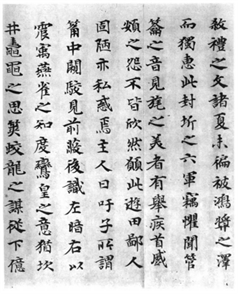 禮之文諸夏未徧被鴻之澤
而獨惠此封圻之六軍竊懼聞管
籥之音見旄之美者有舉疾首蹙
頞之怨不皆欣然願此遊田鄙人
固陋亦私惑焉主人曰吁子所謂
中闚駮見前後識左暗右以
燕雀之知度鸞皇之意猶坎
井黽之思蛟龍之謀從下億